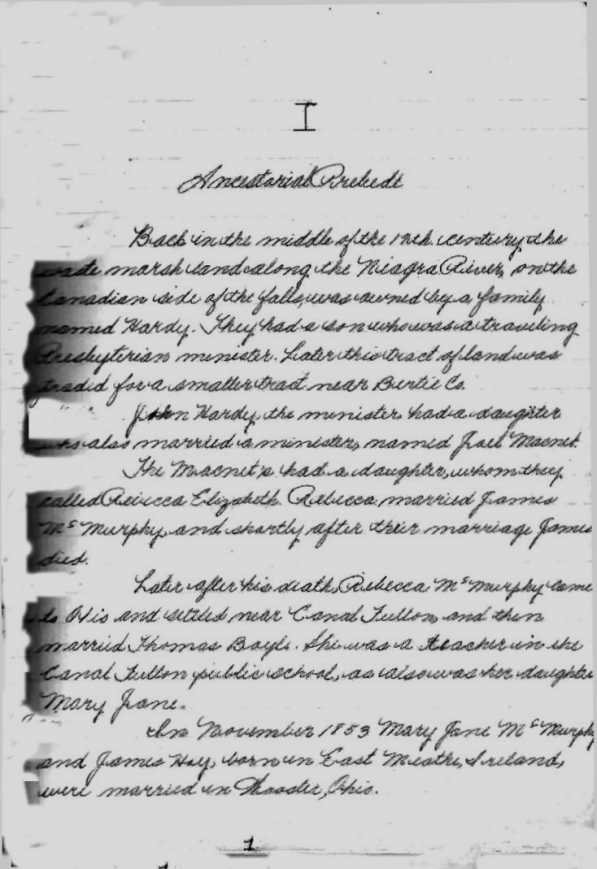 I
Ancestorial Prelude
Back in the middle of the 19th. century, the
waste marsh land along the Niagra River, on the
Canadian side of the falls, was owned by a family
named Hardy. They had a son who was a traveling
Presbyterian minister. Later this tract of land was
traded for a smaller tract near Bertie Co.
John Hardy, the minister, had a daughter
who also married a minister, named Joel
The had a daughter, whom they
called Rebecca Elizabeth. Rebecca, married James
Mc Murphy, and shortly after their marriage James
died.
Later after his death, Rebecca Mc Murphy came
to Ohio and settled near Canal Fulton, and then
married Thomas Boyle. She was a teacher in the
Canal Fulton public school, as also was her daughter
Mary Jane.
In November 1853 Mary Jane Mc Murphy
and James Hoy, born in East Meathe, Ireland,
were married in Wooster, Ohio.
1